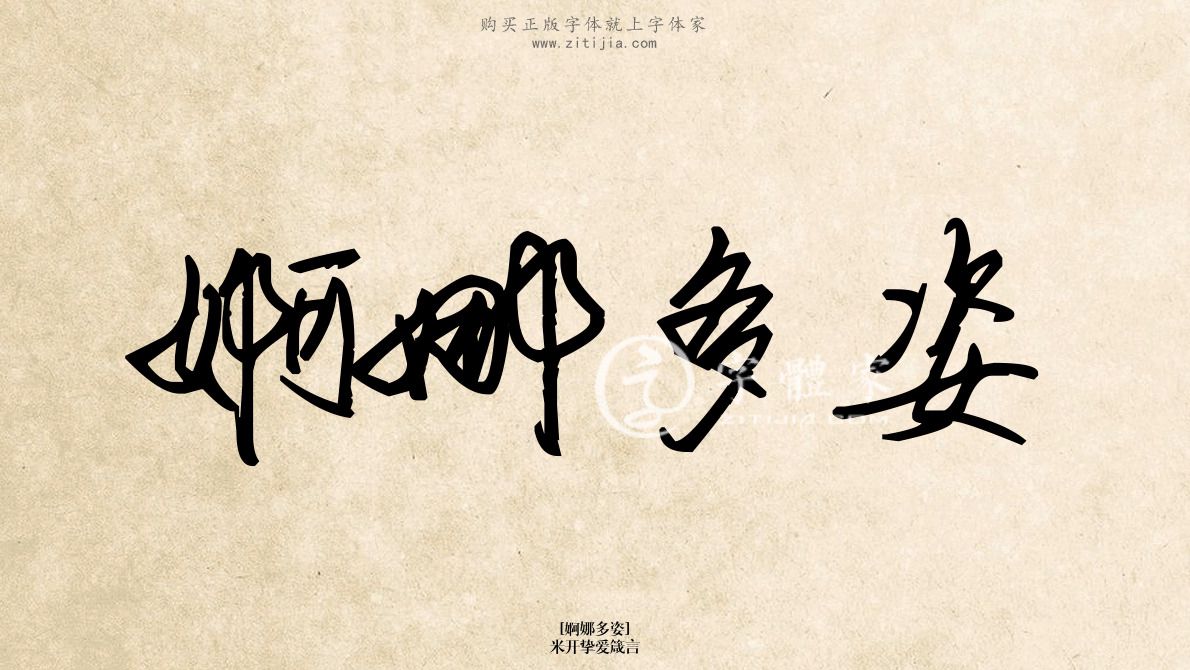 购买正版字体就上字体家
www.zitijia.com
婀娜多姿
字體家
ZITIJIA.COM
[婀娜多姿]
米开挚爱箴言